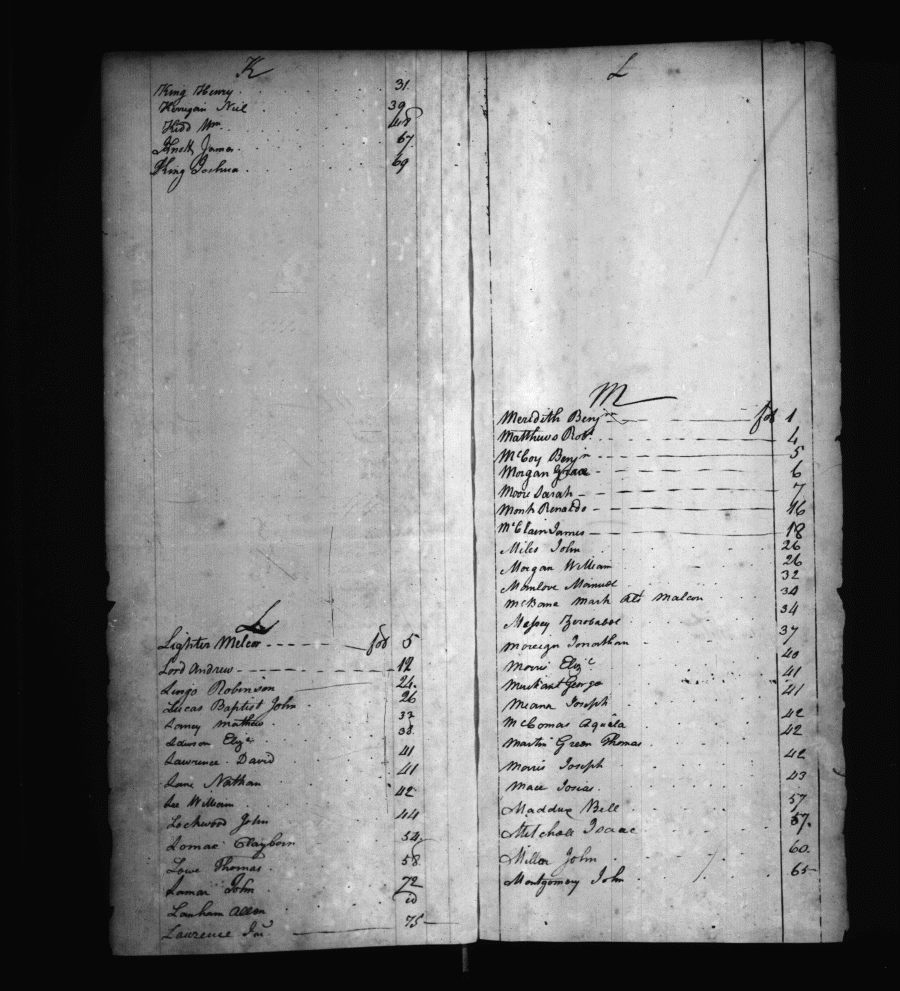 K
King Henry 31
Kerrigan Neil 39
Kidd Wm 48
Knott James 67
King Joshua 69
L
Lighter Melcor fol 5
Lord Andrew 12
Lingo Robinson 24
Lucas Baptist John 26
Lamey Mathew 37
Lawson Eliza 38
Lawrence David 41
Lane Nathan 41
Lee William 42
Lockwood John 44
Lomac Clayborn 54
Lowe Thomas 58
Lamar John 72
Lanham Allen id
Lawrence 75
L
M
Meredith Benjn fol 1
Matthews Robt 4
McCoy Benjn 5
Morgan 6
Moore Sarah 7
Monk Renaldo 16
McClain James 18
Miles John 26
Morgan William 26
Manlove Manuel 32
McBane Mark Als Malcon 34
Massey Zerobabel 34
Jonathan 37
Morris Eliza 40
Merchant George 41
Means Joseph 41
McComas Aquila 42
Martin Green Thomas 42
Morris Joseph 42
Mace Josias 43
Maddux Bell 57
Mitchell Isaac 57.
Miller John 60
Montgomery John 65